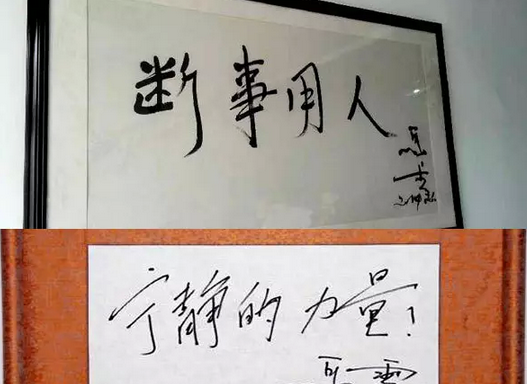 断事用人
宁静的力量！